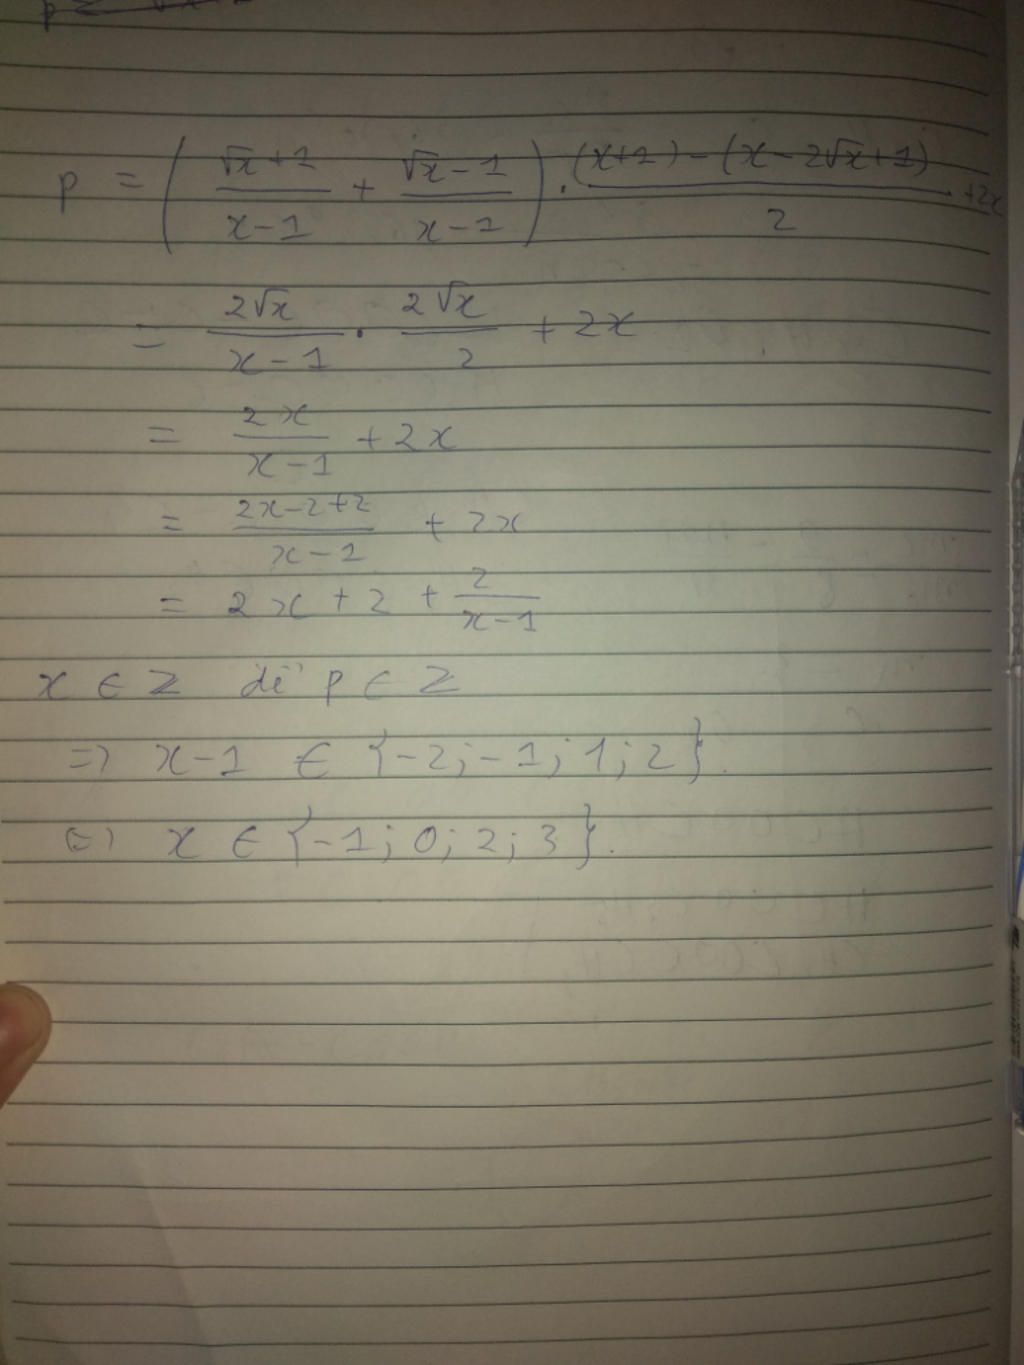 p = ( (√x + 1)/(x - 1) + (√x - 1)/(x - 1) ) . ((x+1) - (x - 2√x + 1))/2 + 2x
= (2√x)/(x - 1) . (2√x)/2 + 2x
= (2x)/(x - 1) + 2x
= (2x - 2 + 2)/(x - 1) + 2x
= 2x + 2 + 2/(x - 1)
x ∈ Z để p ∈ Z
=> x - 1 ∈ {-2; -1; 1; 2}.
<=> x ∈ {-1; 0; 2; 3}.